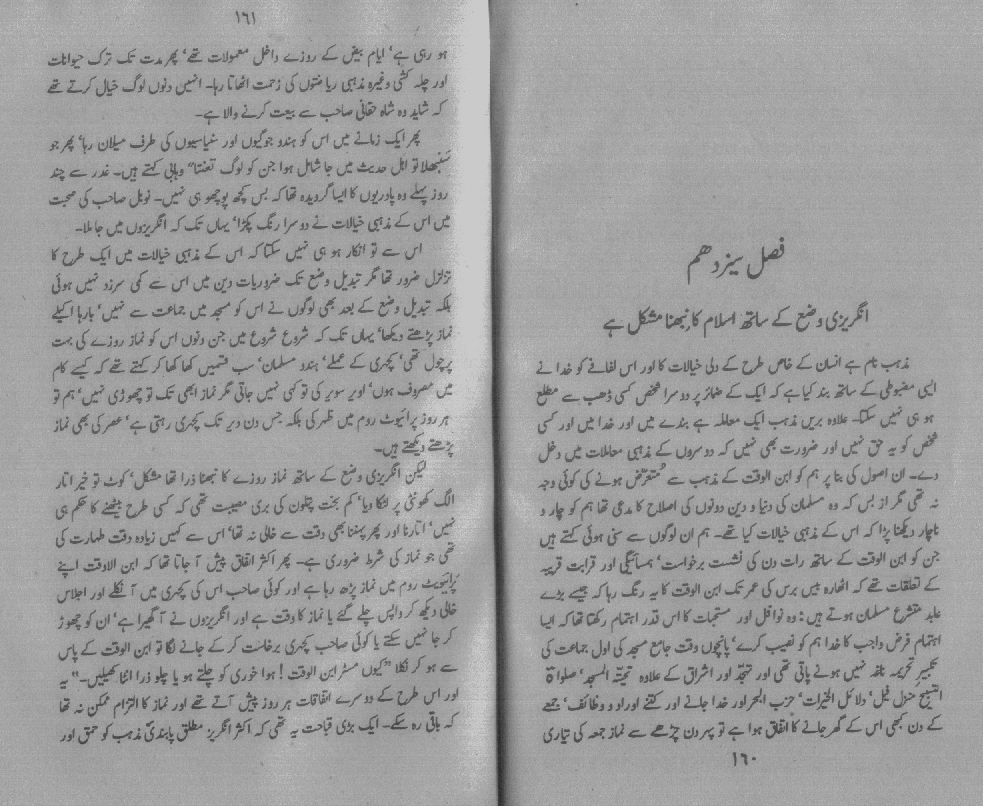 فصل سیزدھم
انگریزی وضع کے ساتھ اسلام کا نبھنا مشکل ہے
مذہب نام ہے انسان کے خاص طرح کے دلی خیالات کا اور اس لفافے کو خدا نے
ایسی مضبوطی کے ساتھ بند کیا ہے کہ ایک کے ضمائر پر دوسرا شخص کسی ڈھب سے مطلع
ہو ہی نہیں سکتا۔ علاوہ بریں مذہب ایک معاملہ ہے بندے میں اور خدا میں اور کسی
شخص کو یہ حق نہیں اور ضرورت بھی نہیں کہ دوسروں کے مذہبی معاملات میں دخل
دے۔ ان اصول کی بنا پر ہم کو ابن الوقت کے مذہب سے مُتعرّض ہونے کی کوئی وجہ
نہ تھی مگر از بس کہ وہ مسلمان کی دنیا و دین دونوں کی اصلاح کا مدعی تھا ہم کو چار و
ناچار دیکھنا پڑا کہ اس کے مذہبی خیالات کیا تھے۔ ہم ان لوگوں سے سنی ہوئی کہتے ہیں
جن کو ابن الوقت کے ساتھ رات دن کی نشست برخواست‘ ہمسائیگی اور قرابت قریبہ
کے تعلقات تھے کہ اٹھارہ بیس برس کی عمر تک ابن الوقت کا یہ رنگ رہا کہ جیسے بڑے
عابد متشرع مسلمان ہوتے ہیں: وہ نوافل اور مستحبات کا اس قدر اہتمام رکھتا تھا کہ ایسا
اہتمام فرض واجب کا خدا ہم کو نصیب کرے‘ پانچوں وقت جامع مسجد کی اول جماعت کی
تکبیر تحریمہ ناغہ نہیں ہونے پاتی تھی اور تہجد اور اشراق کے علاوہ تحیتہ المسجد‘ صلواۃ
التسبیح منزل فیل‘ دلائل الخیرات‘ حزب البحر اور خدا جانے اور کتنے اوراد و وظائف‘ جمعے
کے دن کبھی اس کے گھر جانے کا اتفاق ہوا ہے تو پہر دن چڑھے سے نماز جمعہ کی تیاری
۱۶۰
۱۶۱
ہو رہی ہے‘ ایام بیض کے روزے داخل معمولات تھے‘ پھر مدت تک ترک حیوانات
اور چلہ کشی وغیرہ مذہبی ریاضتوں کی زحمت اٹھاتا رہا۔ انہیں دنوں لوگ خیال کرتے تھے
کہ شاید وہ شاہ حقانی صاحب سے بیعت کرنے والا ہے۔
پھر ایک زمانے میں اس کو ہندو جوگیوں اور سنیاسیوں کی طرف میلان رہا‘ پھر جو
سنبھلا تو اہل حدیث میں جا شامل ہوا جن کو لوگ تعنتا" وہابی کہتے ہیں۔ غدر سے چند
روز پہلے وہ پادریوں کا ایسا گرویدہ تھا کہ بس کچھ پوچھو ہی نہیں۔ نوبل صاحب کی صحبت
میں اس کے مذہبی خیالات نے دوسرا رنگ پکڑا‘ یہاں تک کہ انگریزوں میں جا ملا۔
اس سے تو انکار ہو ہی نہیں سکتا کہ اس کے مذہبی خیالات میں ایک طرح کا
تزلزل ضرور تھا مگر تبدیل وضع تک ضروریات دین میں اس سے کمی سرزد نہیں ہوئی
بلکہ تبدیل وضع کے بعد بھی لوگوں نے اس کو مسجد میں جماعت سے نہیں‘ بارہا اکیلے
نماز پڑھتے دیکھا‘ یہاں تک کہ شروع شروع میں جن دنوں اس کو نماز روزے کی بہت
پرچول تھی‘ کچہری کے عملے‘ ہندو مسلمان‘ سب قسمیں کھا کھا کر کہتے تھے کہ کیسے کام
میں مصروف ہوں‘ اویر سویر کی تو کہی نہیں جاتی مگر نماز ابھی تک تو چھوڑی نہیں‘ ہم تو
ہر روز پرائیوٹ روم میں ظہر کی بلکہ جس دن دیر تک کچہری رہتی ہے‘ عصر کی بھی نماز
پڑھتے دیکھتے ہیں۔
لیکن انگریزی وضع کے ساتھ نماز روزے کا نبھنا ذرا تھا مشکل‘ کوٹ تو خیر اتار
الگ کھونٹی پر لٹکا دیا‘ کم بخت پتلون کی بری مصیبت تھی کہ کسی طرح بیٹھنے کا حکم ہی
نہیں‘ اتارنا اور پھر پہننا بھی دقت سے خالی نہ تھا‘ اس سے کہیں زیادہ دقت طہارت کی
تھی جو نماز کی شرط ضروری ہے۔ پھر اکثر اتفاق پیش آ جاتا تھا کہ ابن الاوقت اپنے
پرائیویٹ روم میں نماز پڑھ رہا ہے اور کوئی صاحب اس کی کچہری میں آ نکلے اور اجلاس
خالی دیکھ کر واپس چلے گئے یا نماز کا وقت ہے اور انگریزوں نے آ گھیرا ہے‘ ان کو چھوڑ
کر جا نہیں سکتے یا کوئی صاحب کچہری برخاست کر کے جانے لگا تو ابن الوقت کے پاس
سے ہو کر نکلا "کیوں مسٹر ابن الوقت! ہوا خوری کو چلتے ہو یا چلو ذرا انٹا کھیلیں۔" یہ
اور اس طرح کے دوسرے اتفاقات ہر روز پیش آتے تھے اور نماز کا التزام ممکن نہ تھا
کہ باقی رہ سکے۔ ایک بڑی قباحت یہ تھی کہ اکثر انگریز مطلق پابندیٔ مذہب کو حمق اور